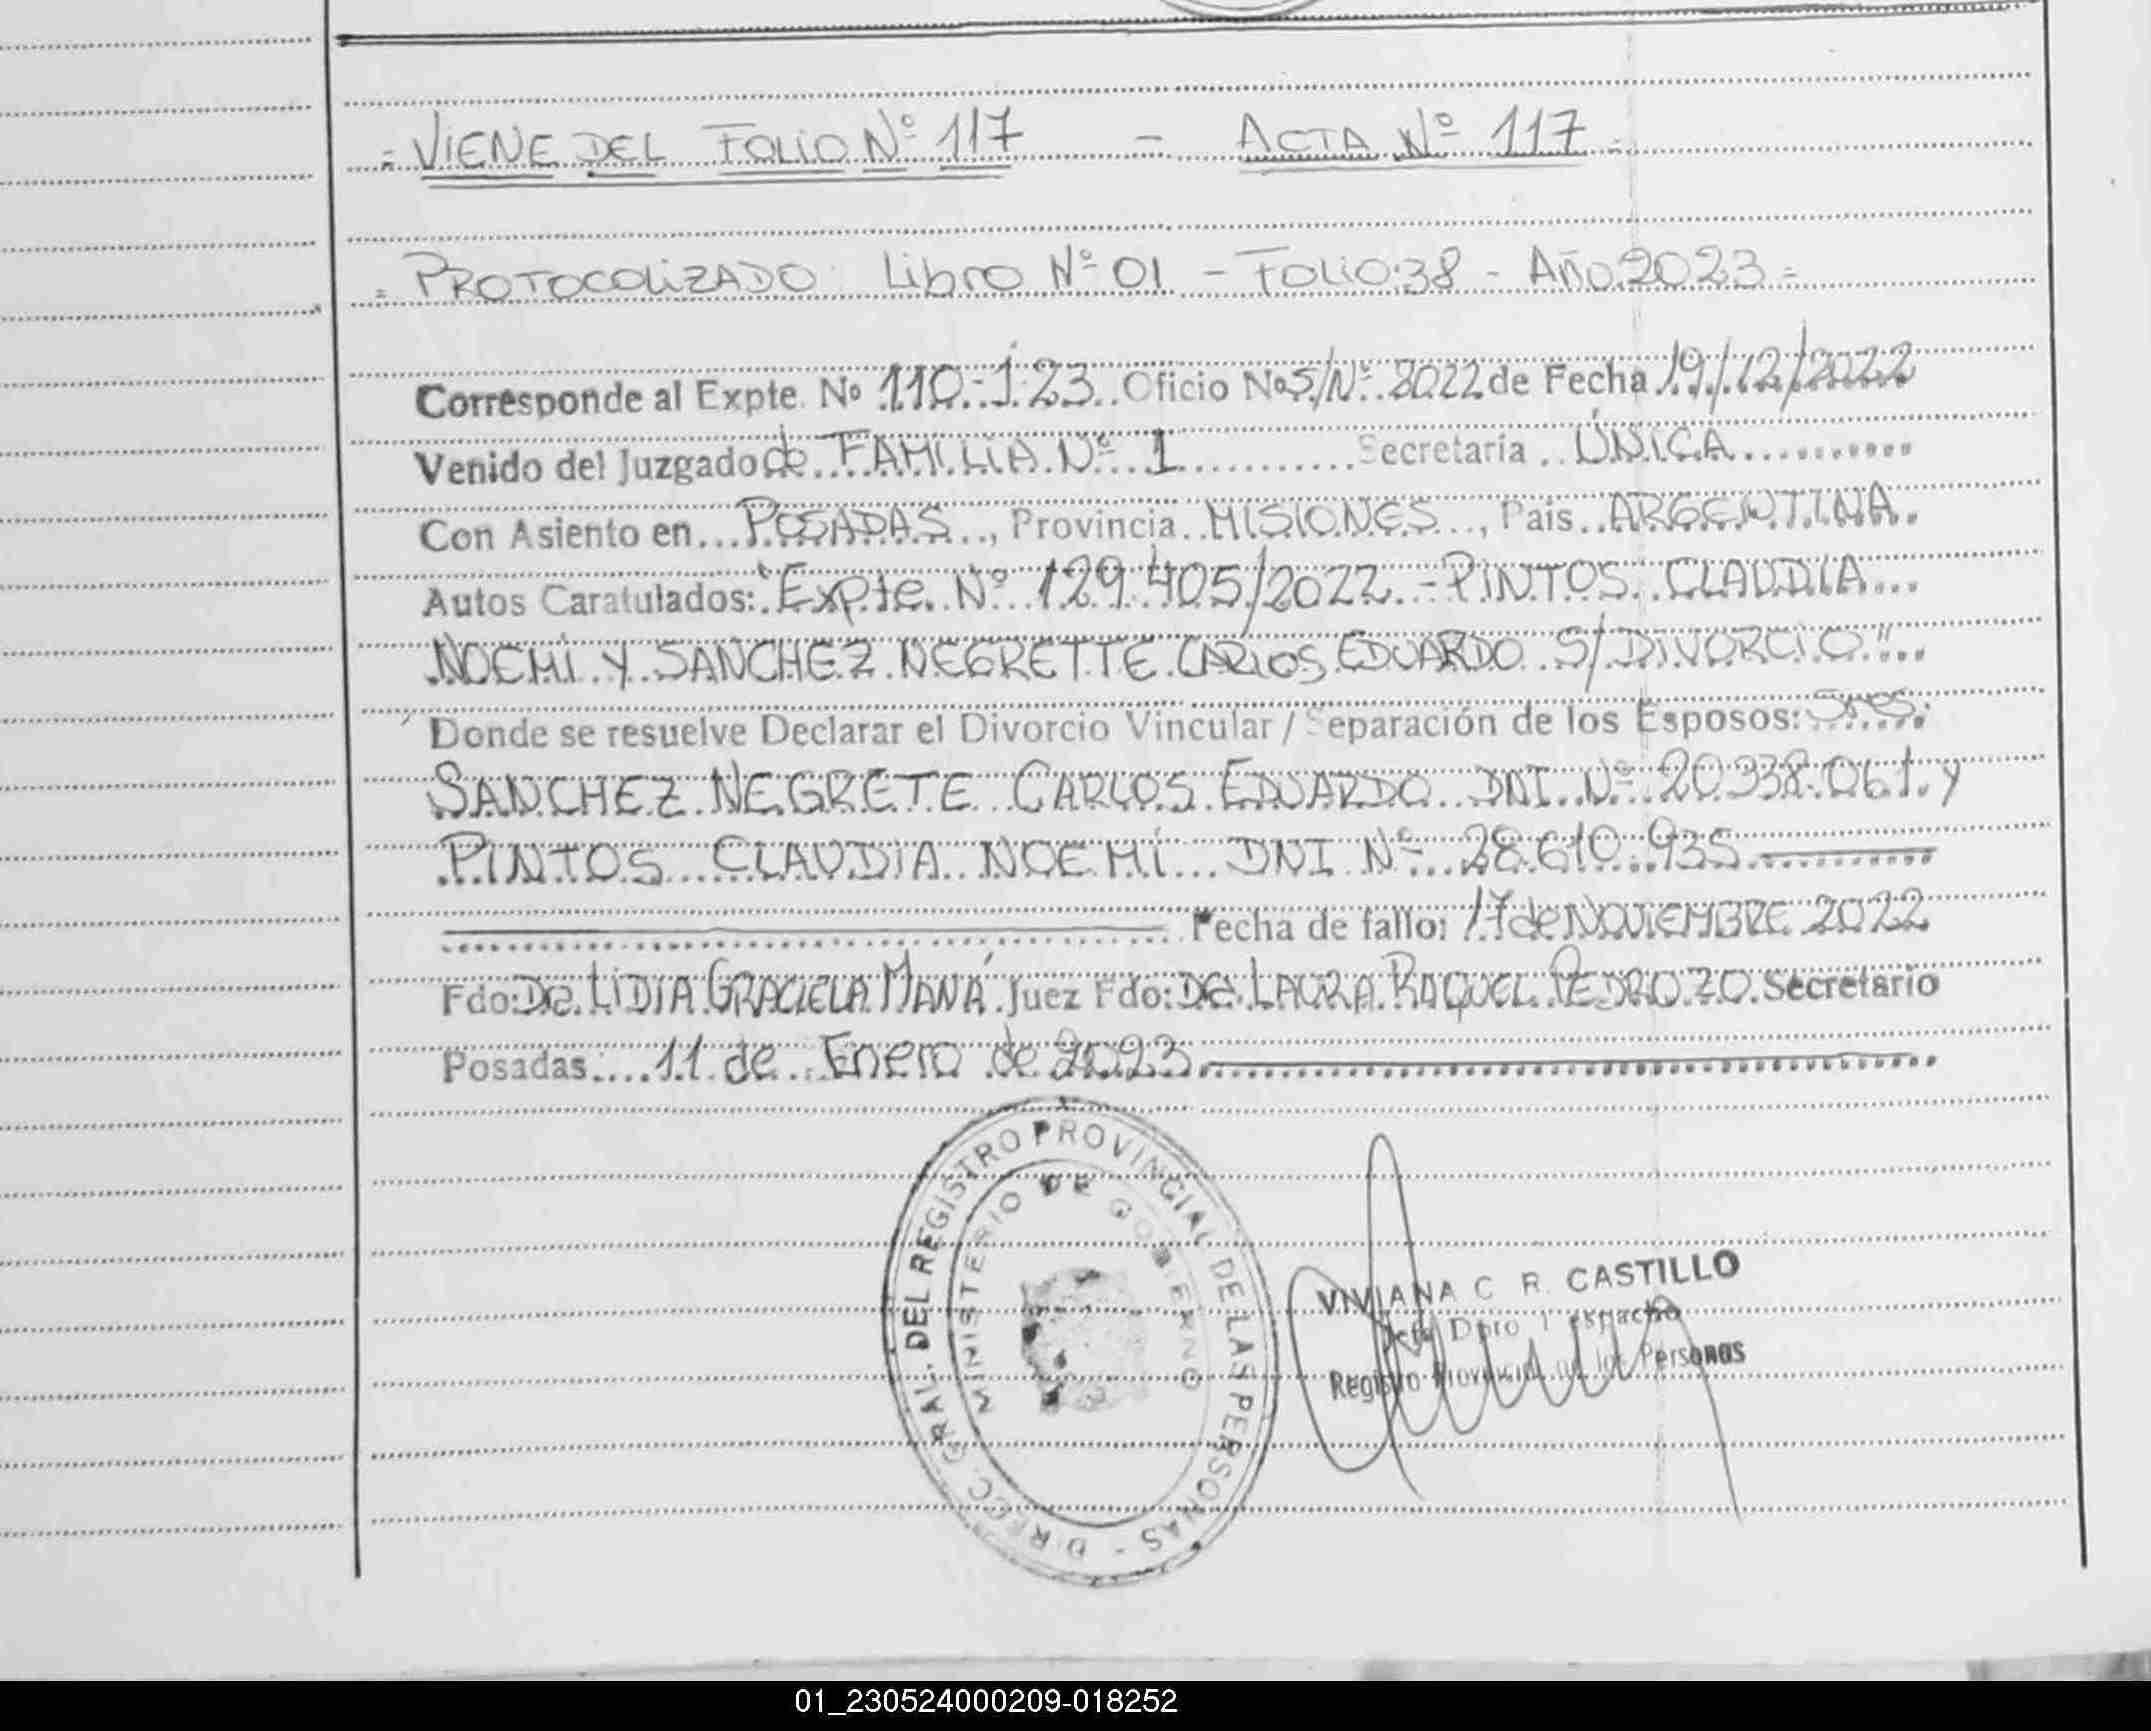 = VIENE DEL FOLIO Nº 117 - ACTA Nº 117 =
= PROTOCOLIZADO: Libro Nº 01 - FOLIO: 38 - AÑO 2023 =
Corresponde al Expte. Nº 110-1-23 Oficio Nº S/Nº 2022 de Fecha 19/12/2022
Venido del Juzgado de FAMILIA Nº 1 Secretaría ÚNICA
Con Asiento en POSADAS, Provincia MISIONES, País ARGENTINA.
Autos Caratulados: "Expte. Nº 129.405/2022 - PINTOS CLAUDIA
NOEMÍ Y SANCHEZ NEGRETTE CARLOS EDUARDO S/ DIVORCIO"
Donde se resuelve Declarar el Divorcio Vincular / Separación de los Esposos: Sres.
SANCHEZ NEGRETE CARLOS EDUARDO DNI Nº 20.338.061 y
PINTOS CLAUDIA NOEMÍ DNI Nº 28.610.935
Fecha de fallo: 17 de NOVIEMBRE 2022
Fdo: DRA. LIDIA GRACIELA MANÁ Juez Fdo: DRA. LAURA RAQUEL PEDROZO Secretario
Posadas: 11 de Enero de 2023
DIRECC. GRAL. DEL REGISTRO PROVINCIAL DE LAS PERSONAS -
MINISTERIO DE GOBIERNO
VIVIANA C. R. CASTILLO
Jefe Dpto Despacho
Registro Provincial de las Personas
01_230524000209-018252